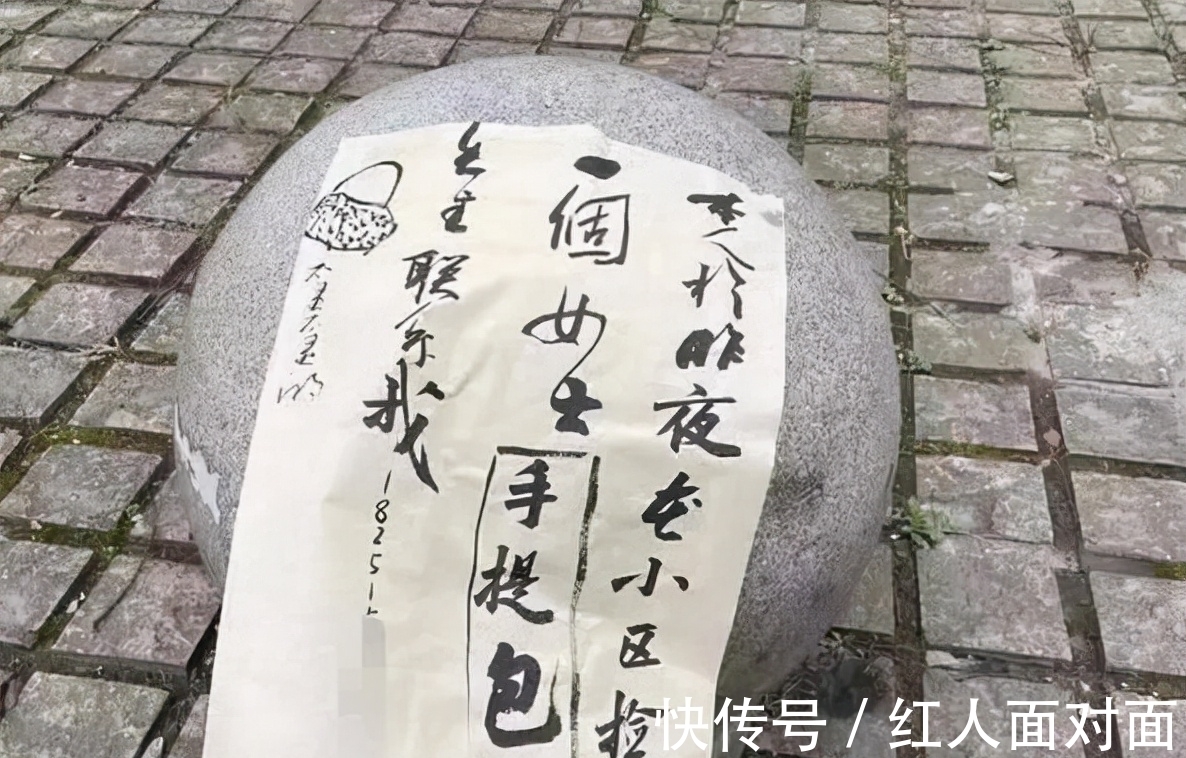 本人於昨夜在小区捡
一個女士手提包
失主联系我
18251
快传号 / 红人面对面